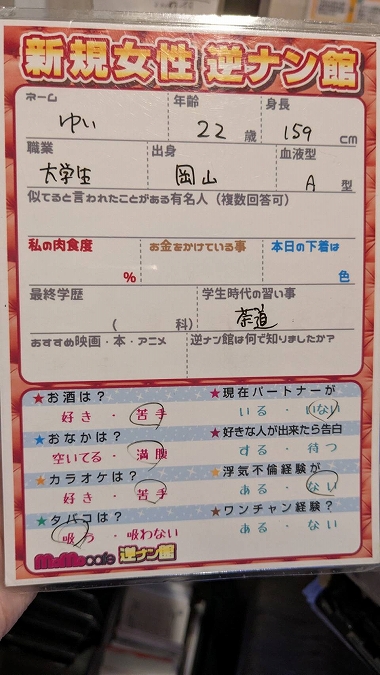 新規女性 逆ナン館
ネーム 年齢 身長
ゆい 22 歳 159 cm
職業 出身 血液型
大学生 岡山 A 型
似てると言われたことがある有名人（複数回答可）
私の肉食度 お金をかけている事 本日の下着は
% 色
最終学歴 学生時代の習い事
（ 科） 茶道
おすすめ映画・本・アニメ 逆ナン館は何で知りましたか？
★お酒は？ ★現在パートナーが
好き・苦手 いる・いない
★おなかは？ ★好きな人が出来たら告白
空いてる・満腹 する・待つ
★カラオケは？ ★浮気不倫経験が
好き・苦手 ある・ない
★タバコは？ ★ワンチャン経験？
吸う・吸わない ある・ない
MoMocafe 逆ナン館